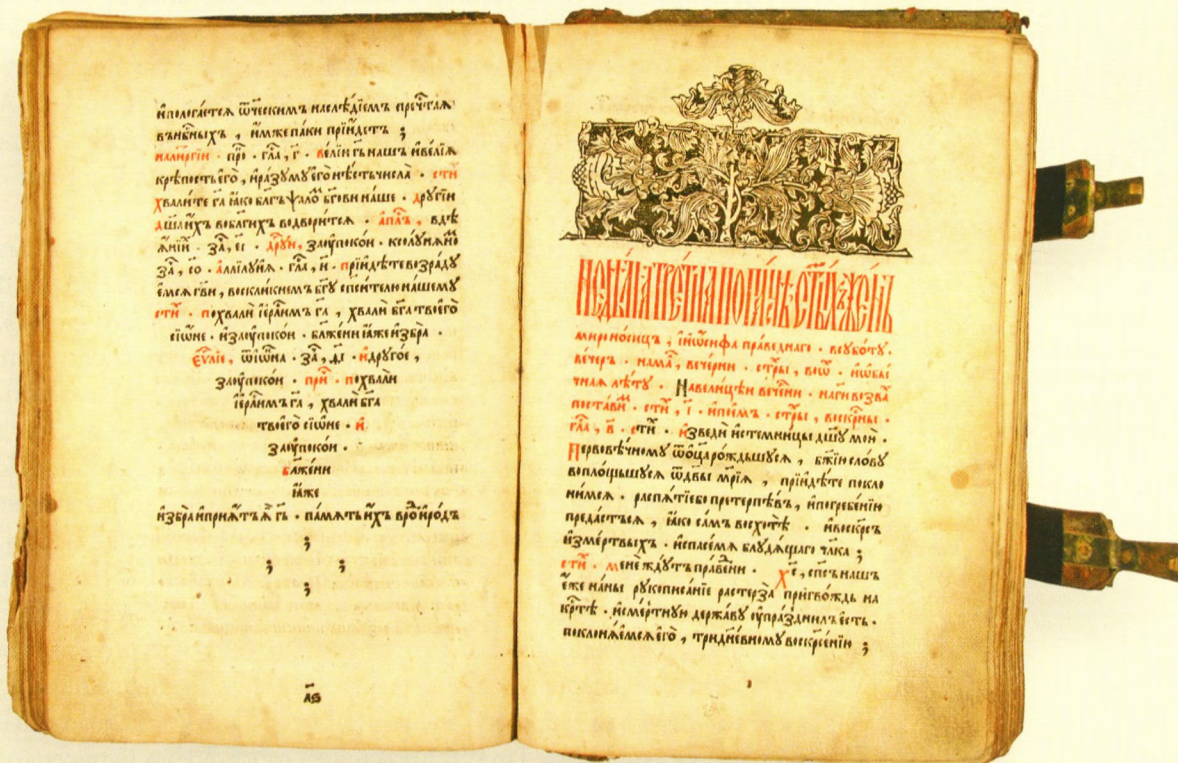 и҆полога́етсѧ ѿч҃ескимъ наслѣ́дїемъ пречⷭ҇таѧ
въ нбⷭ҇ныхъ , и҆́мже па́ки прїи́детъ ;
на лиⷮргїи · прⷪ · гла , г҃ · ве́лїи гь҃ на́шъ и҆ ве́лїѧ
крѣ́пость є҆гѡ̀ , и҆ ра́зумꙋ є҆гѡ̀ нѣ́сть числа̀ · стиⷯ
хвали́те га҃ ꙗ҆́ко бл҃гъ ѱало́мъ бг҃ови на́ше · дрꙋгі́и
дш҃а и҆́хъ во бл҃ги́хъ водвори́тсѧ · а҆пⷭ҇лъ , в дѣ
ѧ҆́нїи · за , є҃і · дрꙋгі́и , заꙋпоко́и · к солꙋ́нѧнѡ
за , со · а҆ллилꙋ́їѧ · гла , и҃ · прїиди́те возра́дꙋ
є҆́мсѧ гв҃и , воскли́кнемъ бг҃ꙋ сп҃си́телю на́шемꙋ
стиⷯ · похвалѝ і҆ерⷭ҇ли́мъ га҃ , хвалѝ бг҃а твоегѡ̀
сїѡ́не · и҆ заꙋпоко́и · бл҃же́ни ꙗ҆́же и҆збра̀ ·
є҆ѵⷢ҇лїе , ѿ і҆ѡ́нна · за , д҃і · и҆ дрꙋго́е ,
заꙋпоко́и · приⷱ · похвалѝ
і҆ерⷭ҇ли́мъ га҃ , хвалѝ бг҃а
твоегѡ̀ сїѡ́не · и҆
заꙋпоко́и ·
бл҃же́ни
ꙗ҆́же
и҆збра̀ и҆ прїѧ́тъ ѧ҆̀ гь҃ · па́мѧть и҆́хъ в роⷣ и҆ ро́дъ
;
; ;
;
л҃ѕ
Недⷧ҇ѧ тре́тїѧ по па́сцѣ ст҃ы́хъ же́нъ
мироно́сицъ , і҆ и҆ѡ́сифа пра́веднаго · в сꙋбо́тꙋ ·
ве́черъ · на ма , вече́рни · стры , во ѡⷯ · и҆ ѡ҆бы́
чнаѧ лѣ́тꙋ · На вели́цѣи вече́рни · на ги возва
поста́вⷨ · стиⷯ , і҃ · и҆ пое́мъ · стры , воскрⷭ҇ны ·
гла , в҃ · стиⷯ · и҆зведѝ и҆с темни́цы дш҃ꙋ мою̀ ·
Первовѣ́чномꙋ ѿ ѻ҆ц҃а ро́ждьшꙋсѧ , бж҃їю сло́вꙋ
вопло́щьшꙋсѧ ѿ дв҃ы мр҃їѧ , прїиди́те покло
ни́мсѧ · распѧ́тїе бо претерпѣ́въ , и҆ погребе́нїю
преда́стьсѧ , ꙗ҆́ко са́мъ восхотѣ̀ · и҆ воскрⷭ҇ъ
и҆з ме́ртвыхъ · и҆ спасе́ мѧ блꙋдѧ́щаго чл҃ка ;
стиⷯ · менѐ ждꙋ́тъ пра́ведни · Хе҃ , сп҃съ на́шъ
є҆́же на́ны рꙋкописа́нїе растерза̀ пригво́ждь на
крⷭ҇тѣ̀ · и҆ сме́ртнꙋю держа́вꙋ ᲂу҆праздни́лъ є҆́сть ·
поклонѧ́емсѧ є҆гѡ̀ , тридне́вномꙋ воскрⷭ҇е́нїю ;